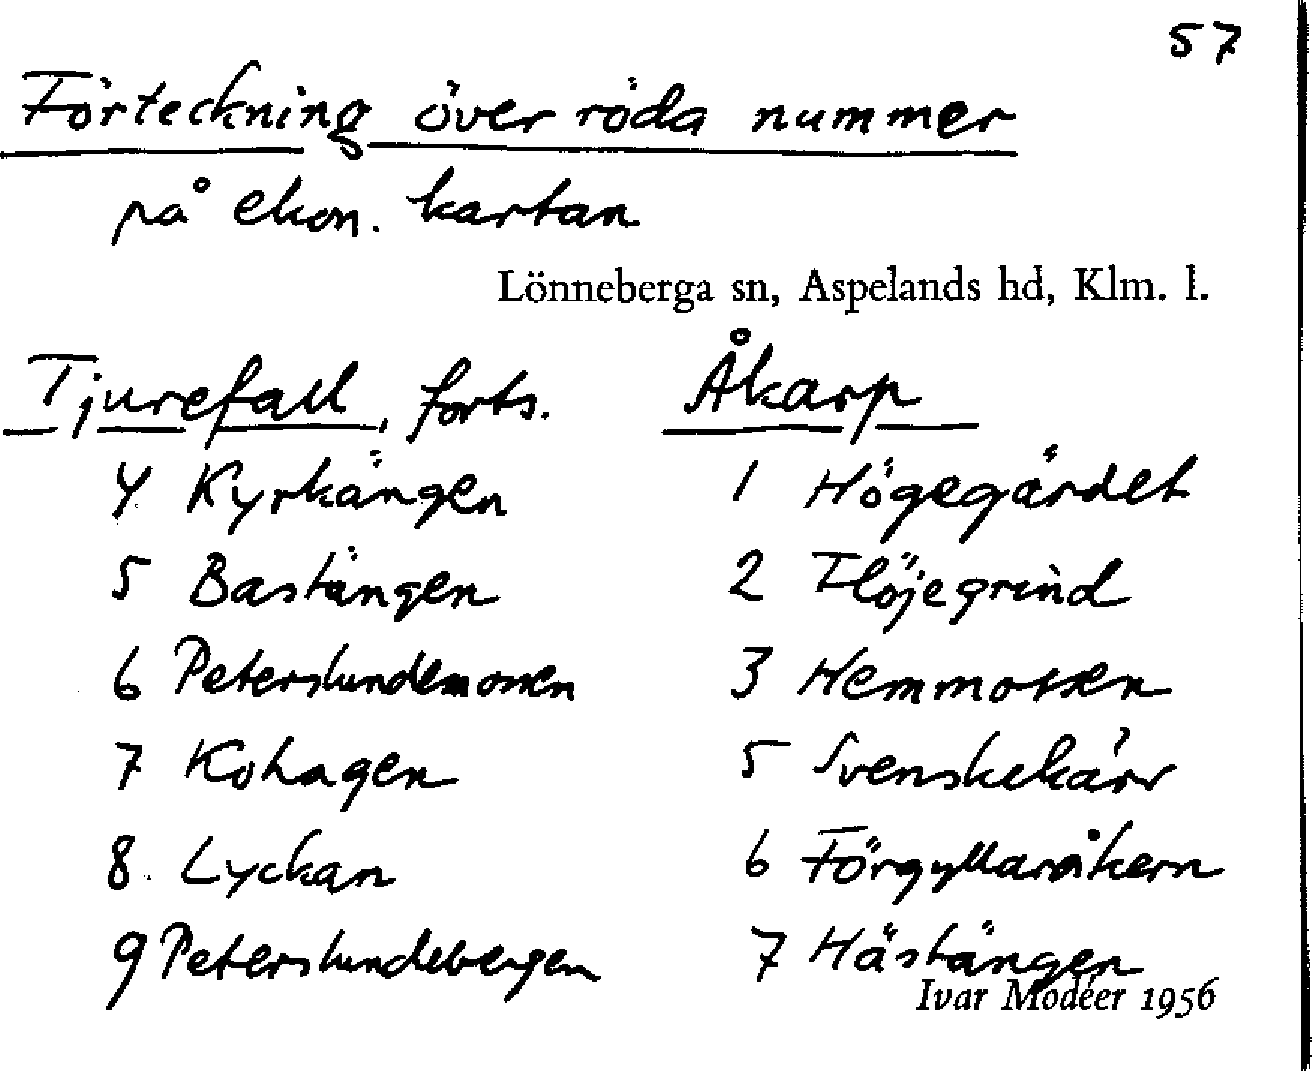 57
Förteckning över röda nummer
på ekon. kartan
Lönneberga sn, Aspelands hd, Klm. l.
Tjurefall, forts.
4 Kyrkängen
5 Bastängen
6 Peterslundemossen
7 Kohagen
8. Lyckan
9 Peterslundebergen
Åkarp
1 Högegärdet
2 Flöjegrind
3 Hemmossen
5 Svenskekärr
6 Förgyllareåkern
7 Hästängen
Ivar Modéer 1956